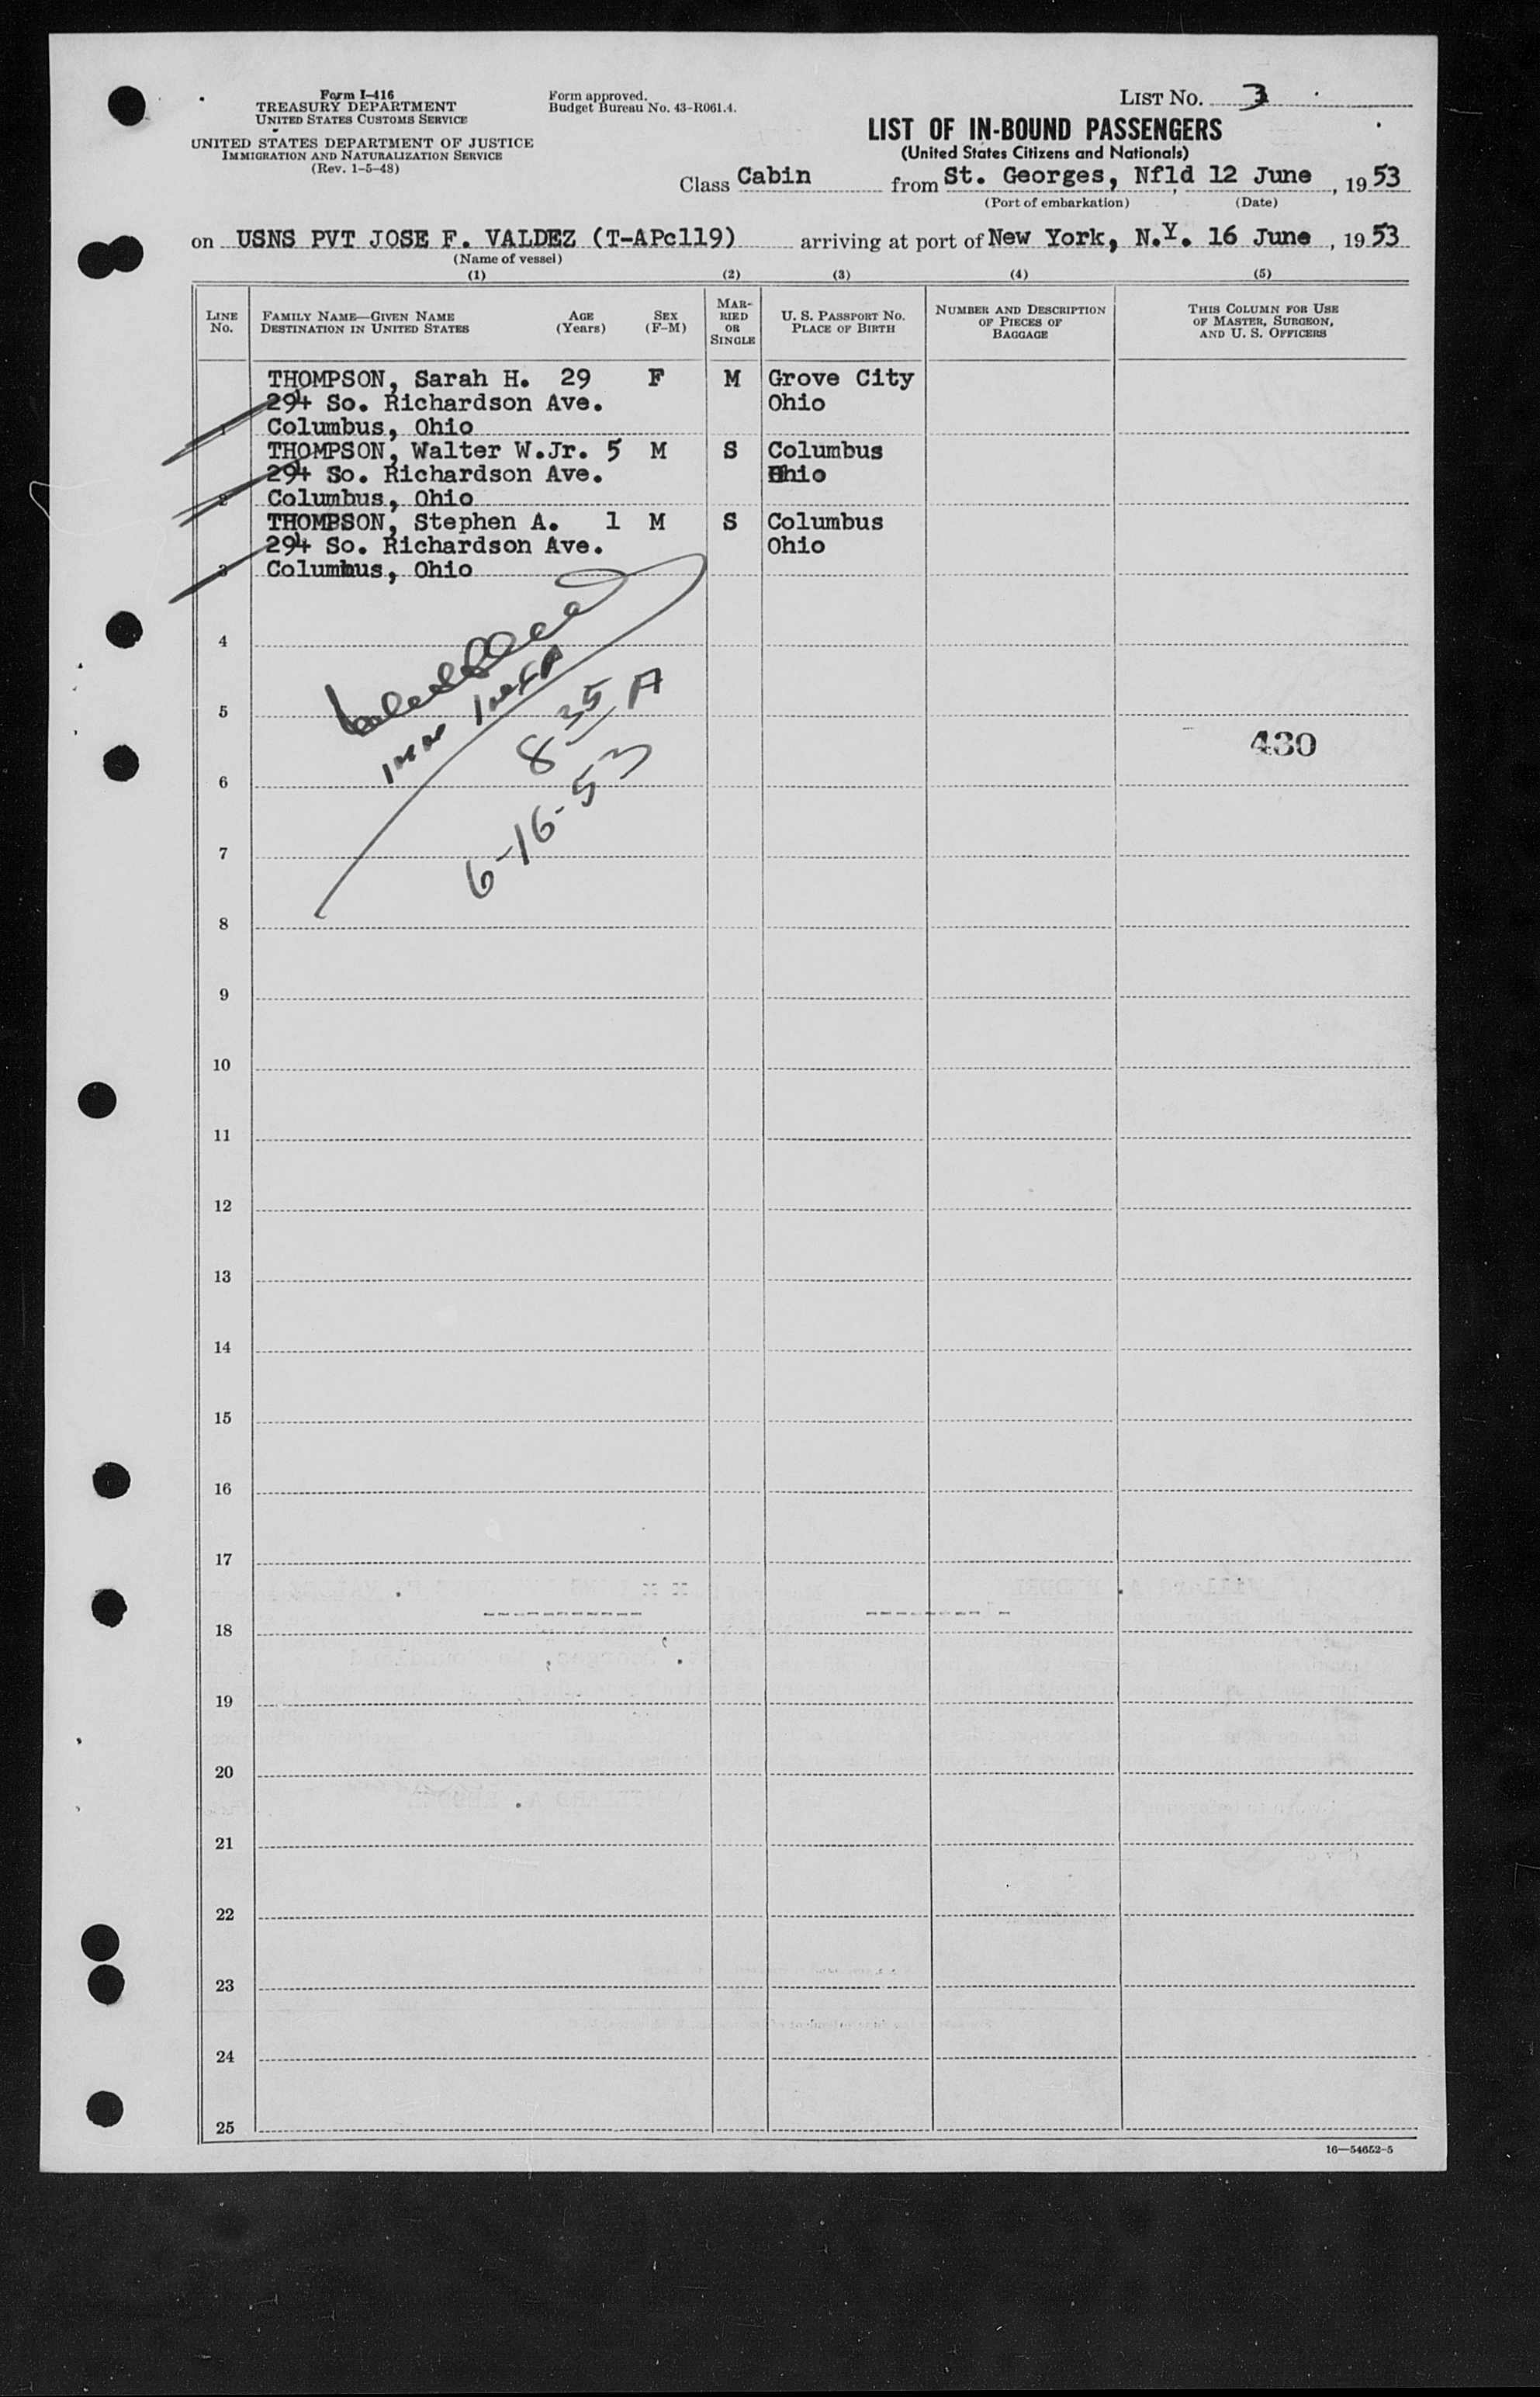 Form I-416
TREASURY DEPARTMENT
UNITED STATES CUSTOMS SERVICE
UNITED STATES DEPARTMENT OF JUSTICE
IMMIGRATION AND NATURALIZATION SERVICE
(Rev. 1-5-48)
Form approved.
Budget Bureau No. 43-R061.4.
LIST NO. 3
LIST OF IN-BOUND PASSENGERS
(United States Citizens and Nationals)
Class Cabin from St. Georges, Nfld, 12 June, 1953
(Port of embarkation) (Date)
on USNS PVT JOSE F. VALDEZ (T-APc119) arriving at port of New York, N.Y. 16 June, 1953
(Name of vessel)
(1) (2) (3) (4) (5)
LINE NO.
FAMILY NAME—GIVEN NAME
DESTINATION IN UNITED STATES
AGE (Years)
SEX (F-M)
MARRIED OR SINGLE
U. S. PASSPORT NO.
PLACE OF BIRTH
NUMBER AND DESCRIPTION OF PIECES OF BAGGAGE
THIS COLUMN FOR USE OF MASTER, SURGEON, AND U. S. OFFICERS
THOMPSON, Sarah H. 29 F M Grove City
294 So. Richardson Ave. Ohio
1 Columbus, Ohio
THOMPSON, Walter W.Jr. 5 M S Columbus
294 So. Richardson Ave. Ohio
2 Columbus, Ohio
THOMPSON, Stephen A. 1 M S Columbus
294 So. Richardson Ave. Ohio
3 Columbus, Ohio
4
5
8 35 A
430
6
6-16-53
7
8
9
10
11
12
13
14
15
16
17
18
19
20
21
22
23
24
25
16—54652-5